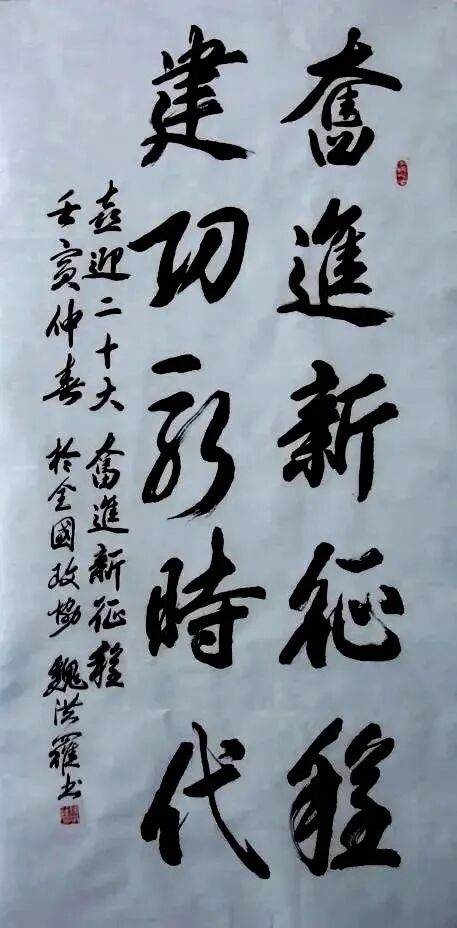 奮進新征程
建功新時代
喜迎二十大 奮進新征程
壬寅仲春 於全國政協 魏洪羅书